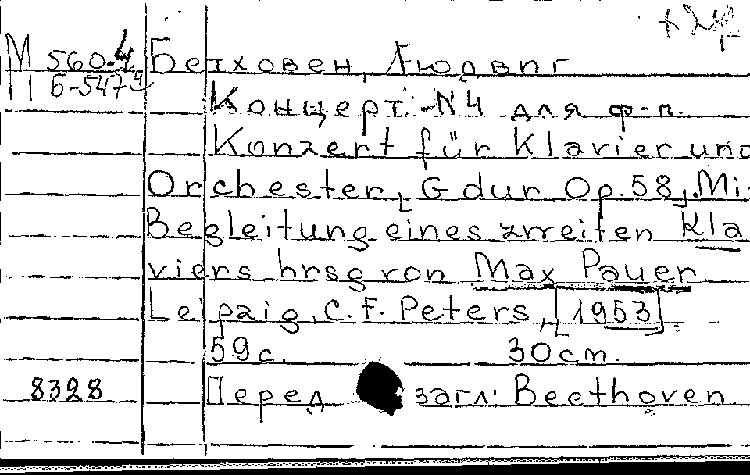 М 560-4 Бетховен, Людвиг
Б-547
Концерт N4 для ф-п.
Konzert für Klavier und
Orchester, G dur Op. 58, Mi
Begleitung eines zweiten Kla
viers hrsg von Max Pauer
Leipzig, C. F. Peters, [1953].
59 с. 30 cm.
8328 Перед загл: Beethoven